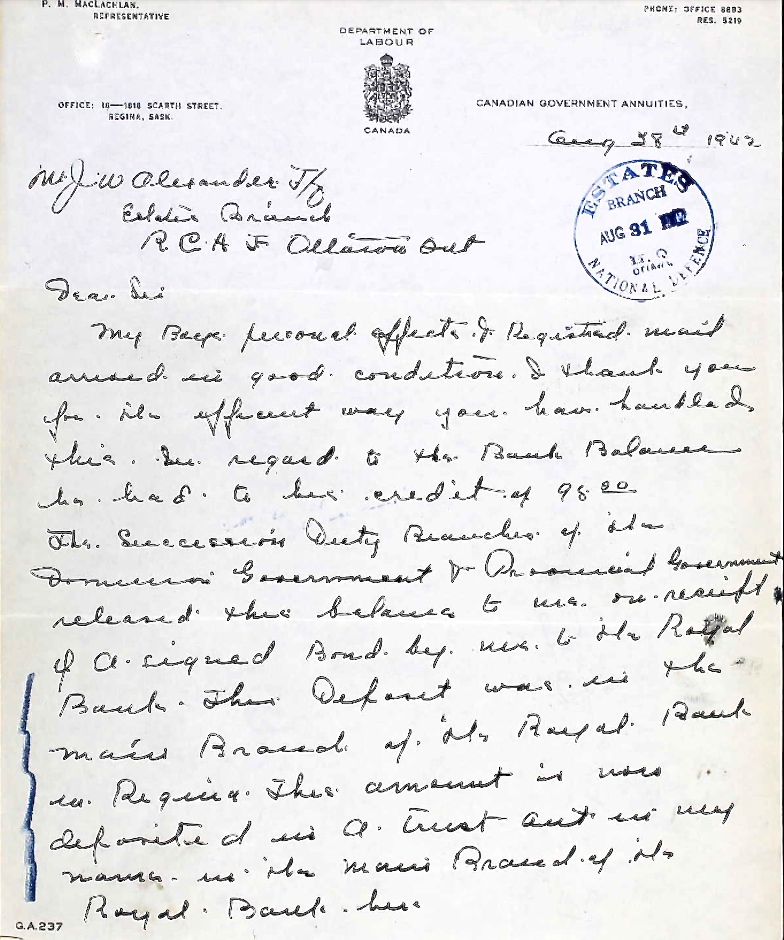 P. M. MACLACHLAN,
REPRESENTATIVE
PHONE: OFFICE 8893
RES. 5219
DEPARTMENT OF
LABOUR
CANADA
OFFICE: 10—1810 SCARTH STREET,
REGINA, SASK.
CANADIAN GOVERNMENT ANNUITIES,
Aug 28th 1942
Mr J. W Alexander F/L
Estates Branch
R.C.A.F Ottawa Ont
ESTATES
BRANCH
AUG 31
OTTAWA
NATIONAL DEFENCE
Dear Sir
My Boys personal effects & Registered mail
arrived in good condition. I thank you
for the efficient way you have handled
this. In regard to the Bank Balance
he had to his credit of 98 00
The Succession Duty Branches of the
Dominion Government & Provincial Government
released this balance to me on receipt
of a signed Bond by me to the Royal
Bank. This Deposit was in the
main Branch of the Royal Bank
in Regina. This amount is now
deposited in a trust acct in my
name in the Main Branch of the
Royal Bank here
G.A.237